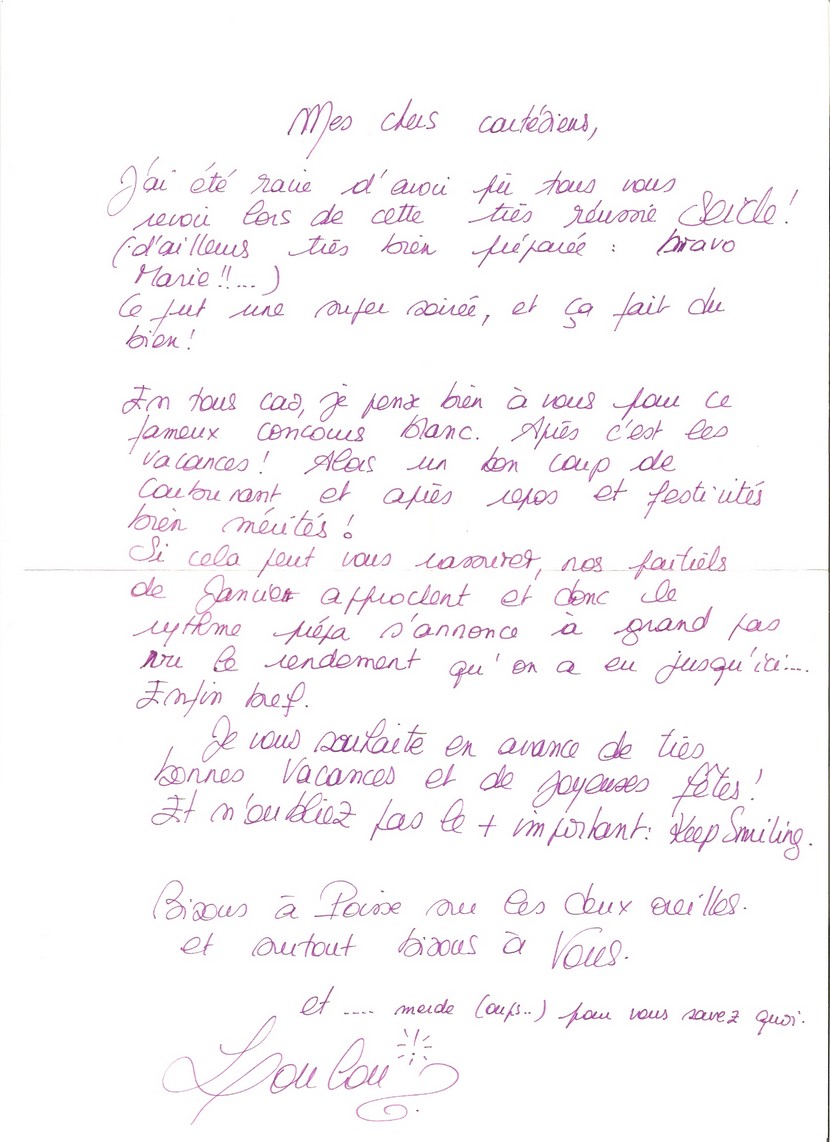 Mes chers cartésiens,
J'ai été ravie d'avoir pu tous vous
revoir lors de cette très réussie Soirée!
(d'ailleurs très bien préparée : bravo
Marie!!...)
Ce fut une super soirée, et ça fait du
bien!
En tous cas, je pense bien à vous pour ce
fameux concours blanc. Après c'est les
vacances! Alors un bon coup de
carburant et après repos et festivités
bien mérités!
Si cela peut vous rassurer, nos partiels
de Janvier approchent et donc le
rythme prépa s'annonce à grand pas
vu le rendement qu'on a eu jusqu'ici....
Enfin bref.
Je vous souhaite en avance de très
bonnes vacances et de joyeuses fêtes!
Et n'oubliez pas le + important: Keep Smiling.
Bisous à sur les deux oreilles.
et surtout bisous à Vous.
et .... merde (oups..) pour vous savez quoi.
Loulou